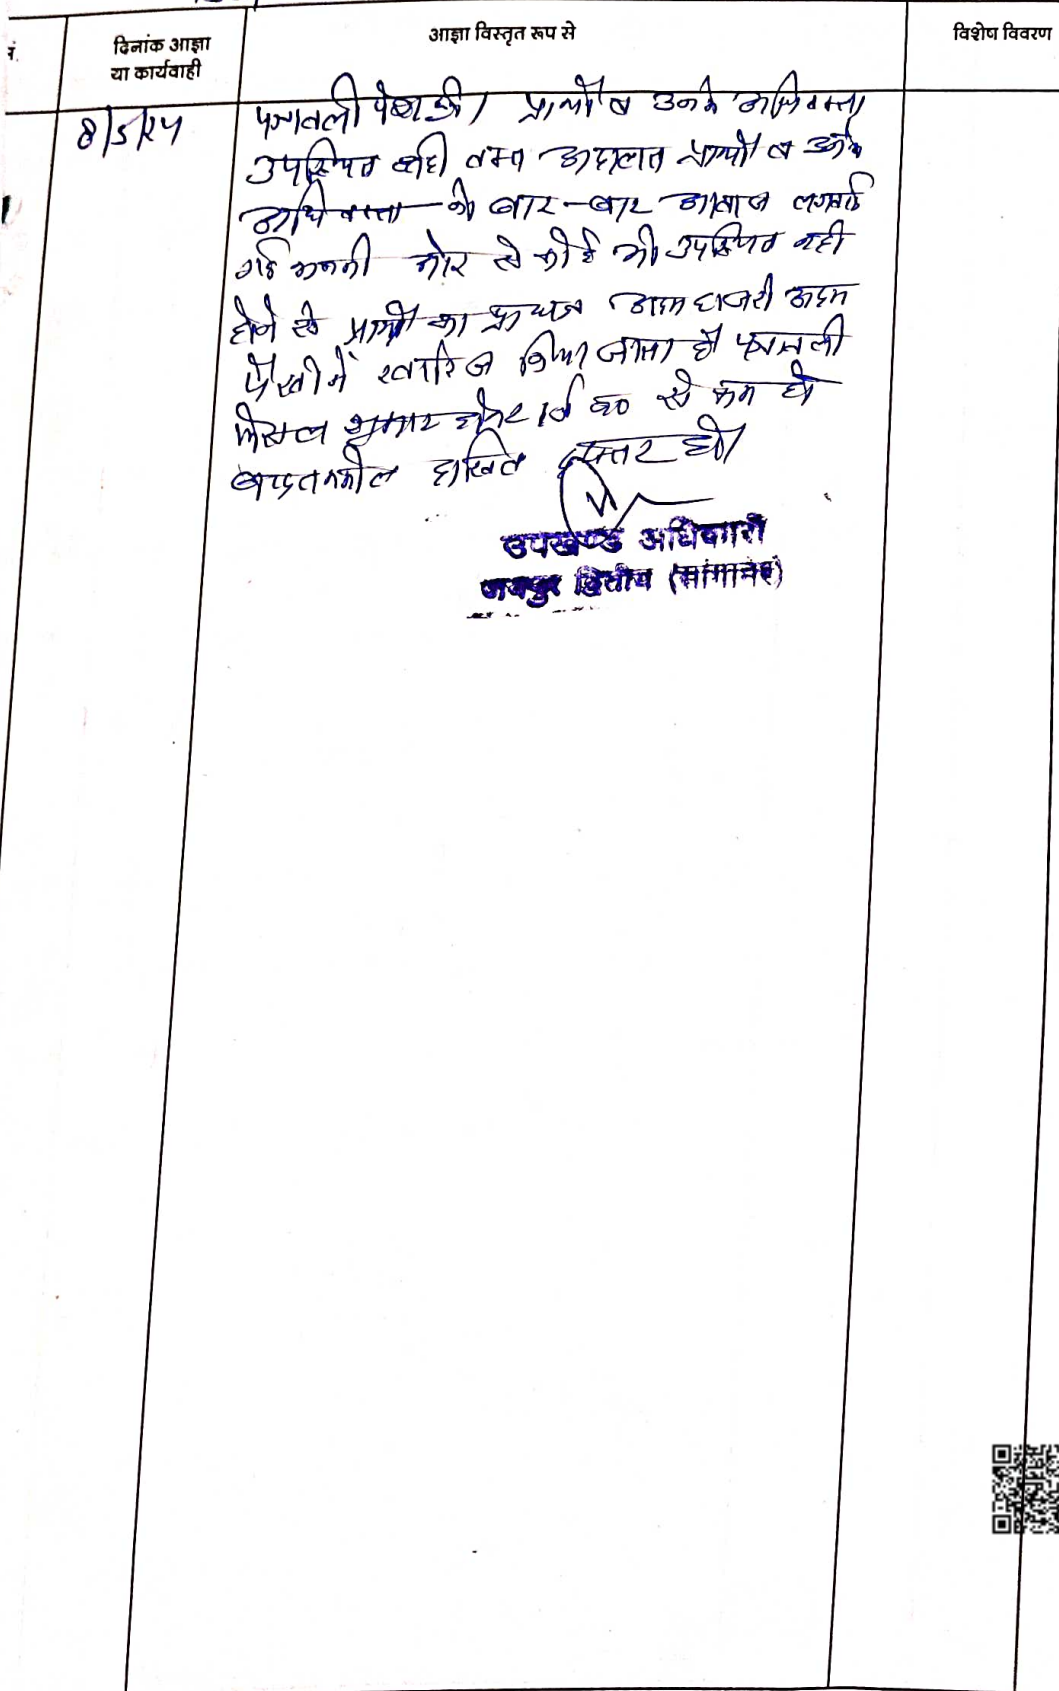 नं.
दिनांक आज्ञा
या कार्यवाही
आज्ञा विस्तृत रूप से
विशेष विवरण
8/5/24
पत्रावली पेश हुई। प्रार्थी व उनके अधिवक्ता
उपस्थित नही वक्त अदालत प्रार्थी व उनके
अधिवक्ता को बार-बार आवाज लगवाई
गई उनकी ओर से कोई भी उपस्थित नही
होने से प्रार्थी का प्रा०पत्र अदम हाजरी अदम
पैरवी में खारिज किया जाता है पत्रावली
फैसल शुमार होकर नं० से कम हो
बादतकमील दाखिल दफ्तर हो।
उपखण्ड अधिकारी
जयपुर द्वितीय (सांगानेर)